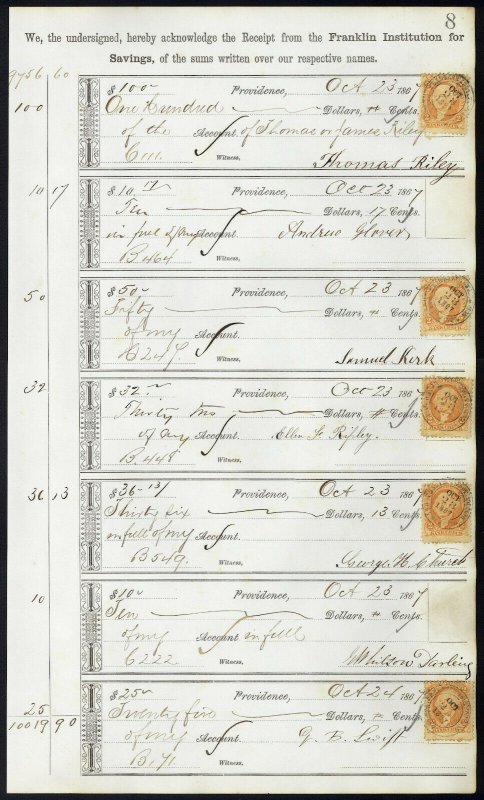 8
We, the undersigned, hereby acknowledge the Receipt from the Franklin Institution for
Savings, of the sums written over our respective names.
9756 60
100
$ 100- Providence, Oct 23 1867
One Hundred Dollars, Cents.
of the Account. of Thomas or James Riley
C111. Witness. Thomas Riley
10 17
$ 10.17 Providence, Oct 23 1867
Ten Dollars, 17 Cents.
in full of my Account. Andrew Glover
B.464 Witness.
50
$ 50- Providence, Oct 23 1867
Fifty Dollars, Cents.
of my Account.
C247. Witness. Samuel Kirk
32
$ 32.- Providence, Oct 23 1867
Thirty two Dollars, Cents.
of my Account. Ellen F. Ripley.
B.448 Witness.
36 13
$ 36-13/ Providence, Oct 23 1867
Thirty six Dollars, 13 Cents.
in full of my Account.
B549. Witness. George H. Church
10
$ 10- Providence, Oct 23 1867
Ten Dollars, Cents.
of my Account. in full
C222 Witness. Darling
25
10019 90
$ 25- Providence, Oct 24 1867
Twenty five Dollars, Cents.
of my Account. B. Swift
B.71. Witness.